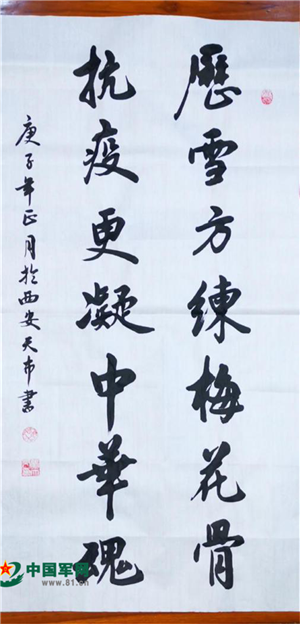 歷雪方練梅花骨
抗疫更凝中華魂
庚子年正月於西安天市書
中国军网
www.81.cn